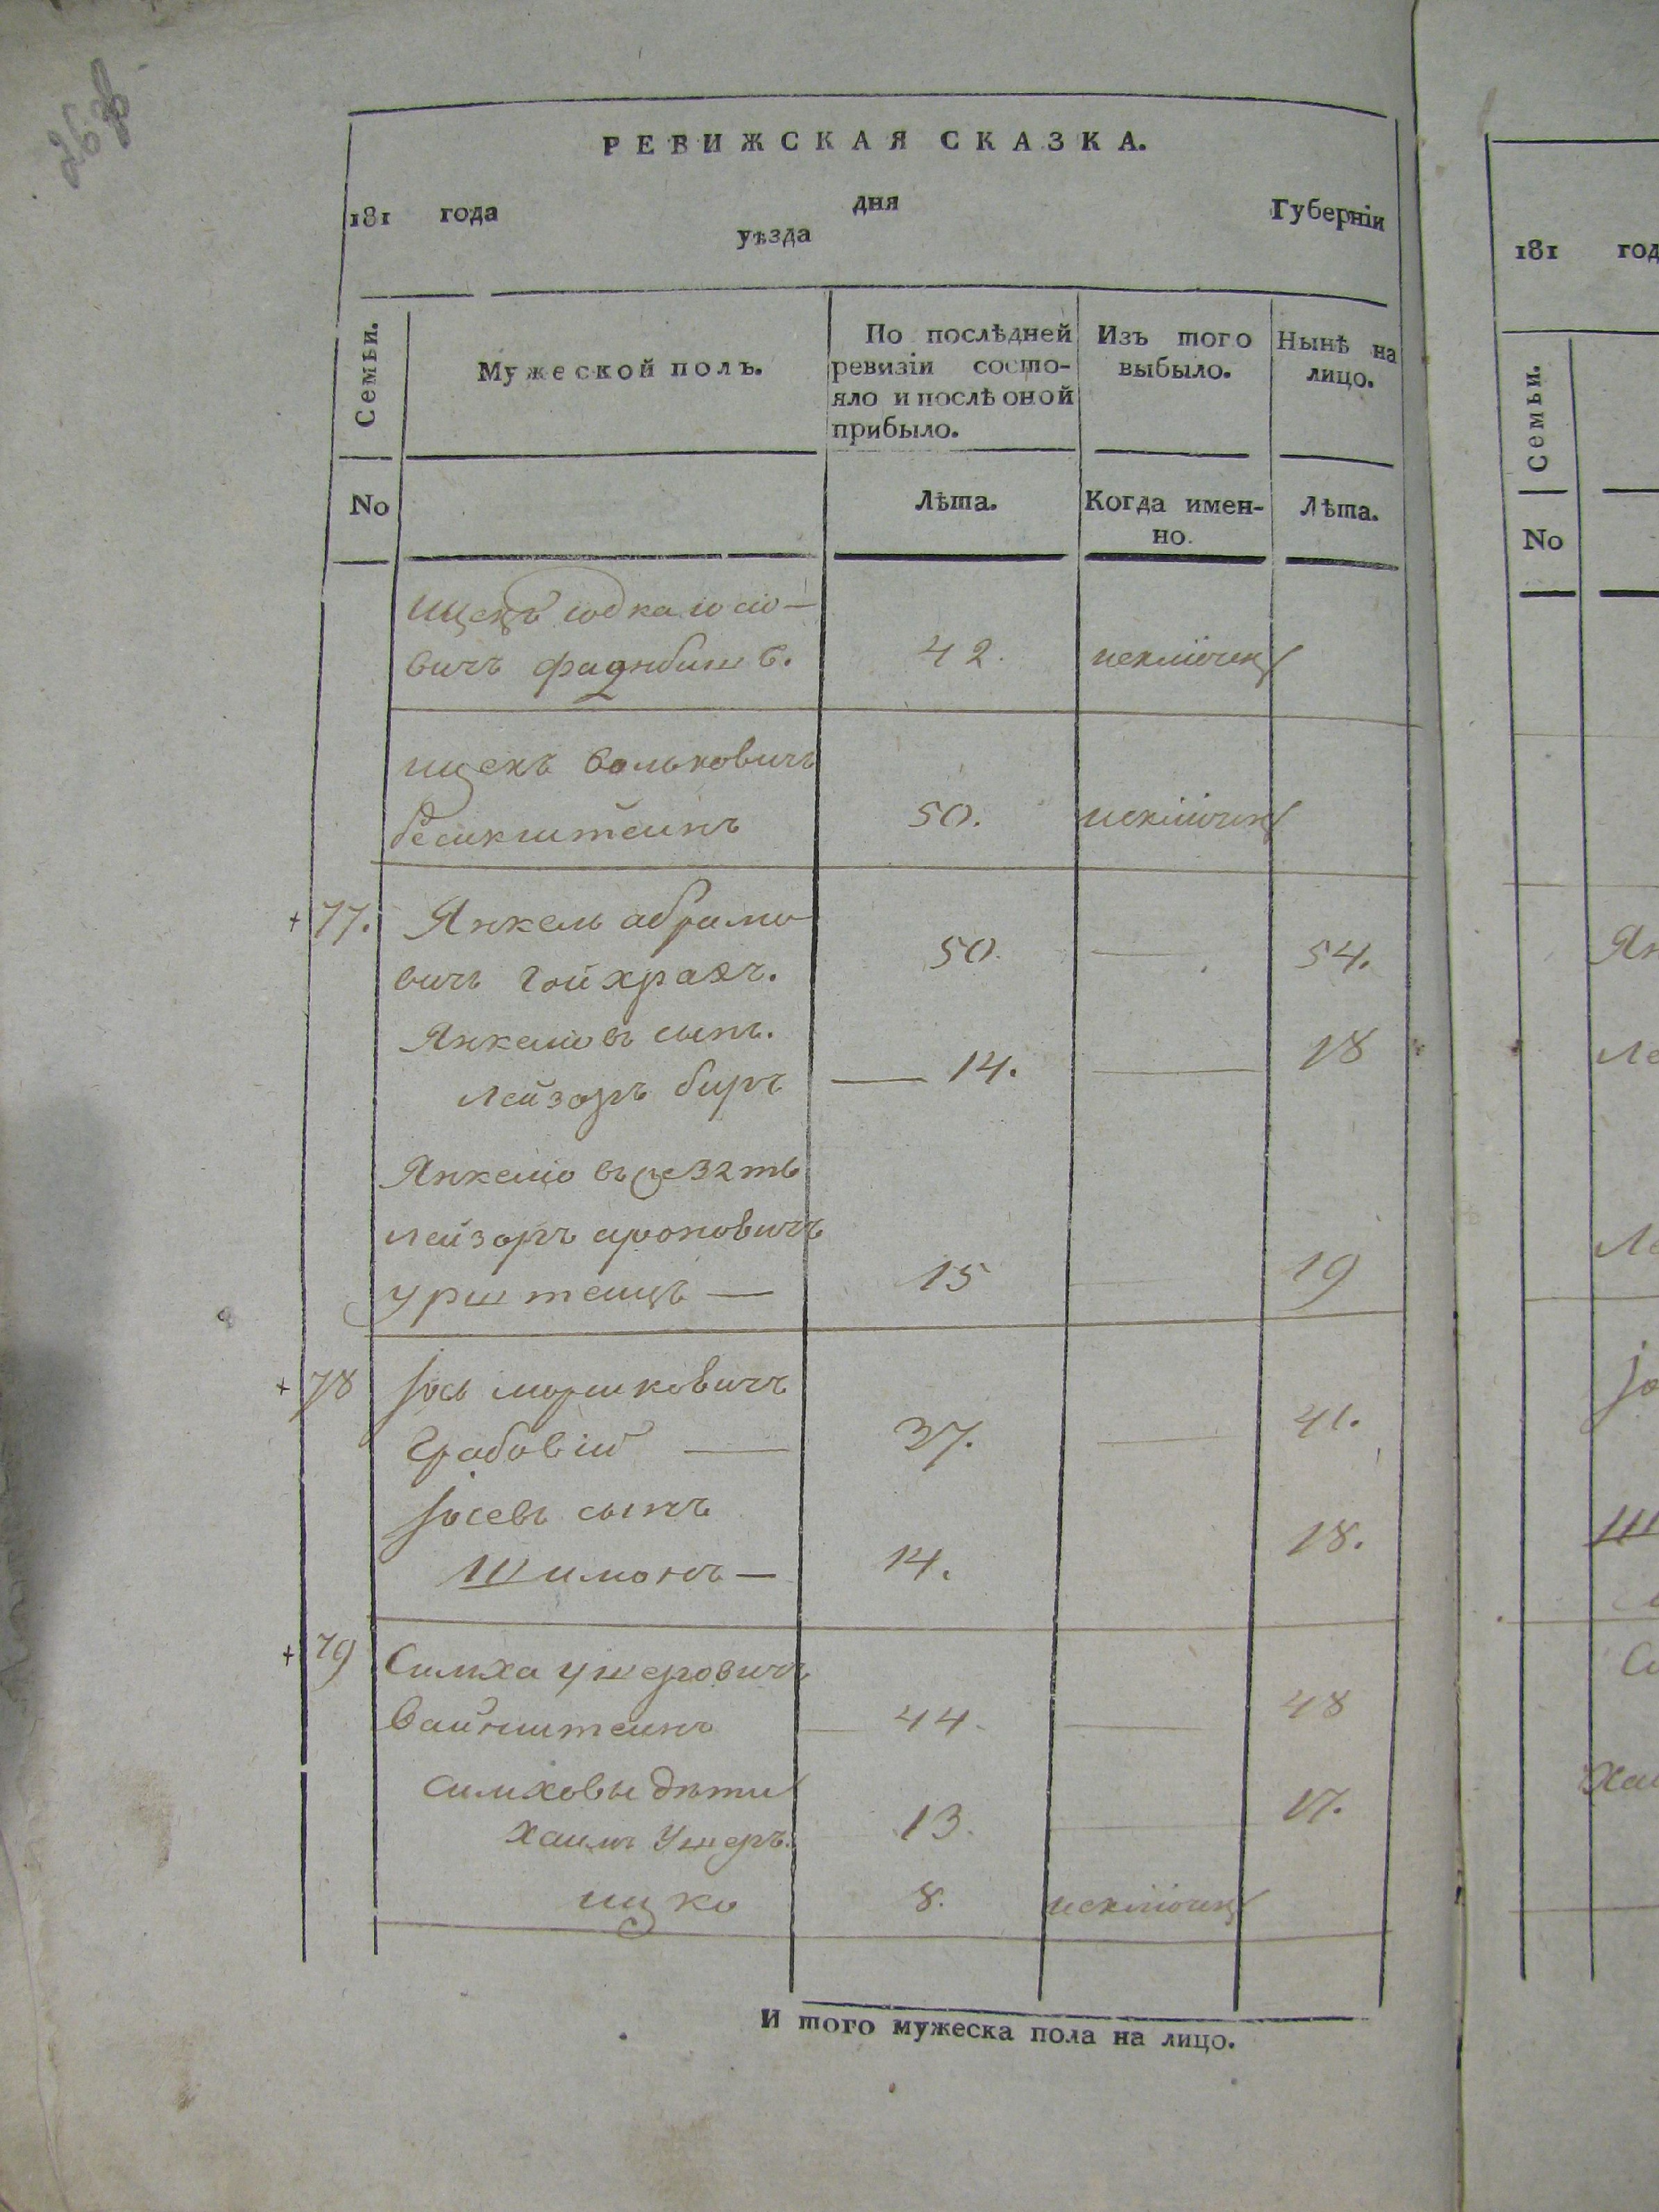 РЕВИЖСКАЯ СКАЗКА.
181 года дня Губерніи
уѣзда
Семьи.
Мужеской полъ.
По послѣдней ревизіи состояло и послѣ оной прибыло.
Изъ того выбыло.
Нынѣ на лицо.
No
Лѣта.
Когда именно.
Лѣта.
вичъ 42.
ицекъ Вольковичъ
50.
+ 77. Янкель абрамо
вичъ Гойхрахъ. 50. 54.
Янкеліовъ сынъ.
Лейзоръ беръ 14. 18
Янкеліовъ зять
Лейзоръ ароновичъ
15 19
+ 78 Іось моршковичъ
Грабовій 37. 41.
Іосевъ сынъ
Шимонъ — 14. 18.
+ 79 Симха ушеровичъ
Вайнштеинъ 44. 48
Симховы дѣти
Хаимъ Ушеръ. 13. 17.
ицко 8.
И того мужеска пола на лицо.
181 год
Семьи.
No
Ян
Ле
Ле
Іо
Ш
Си
Хаи